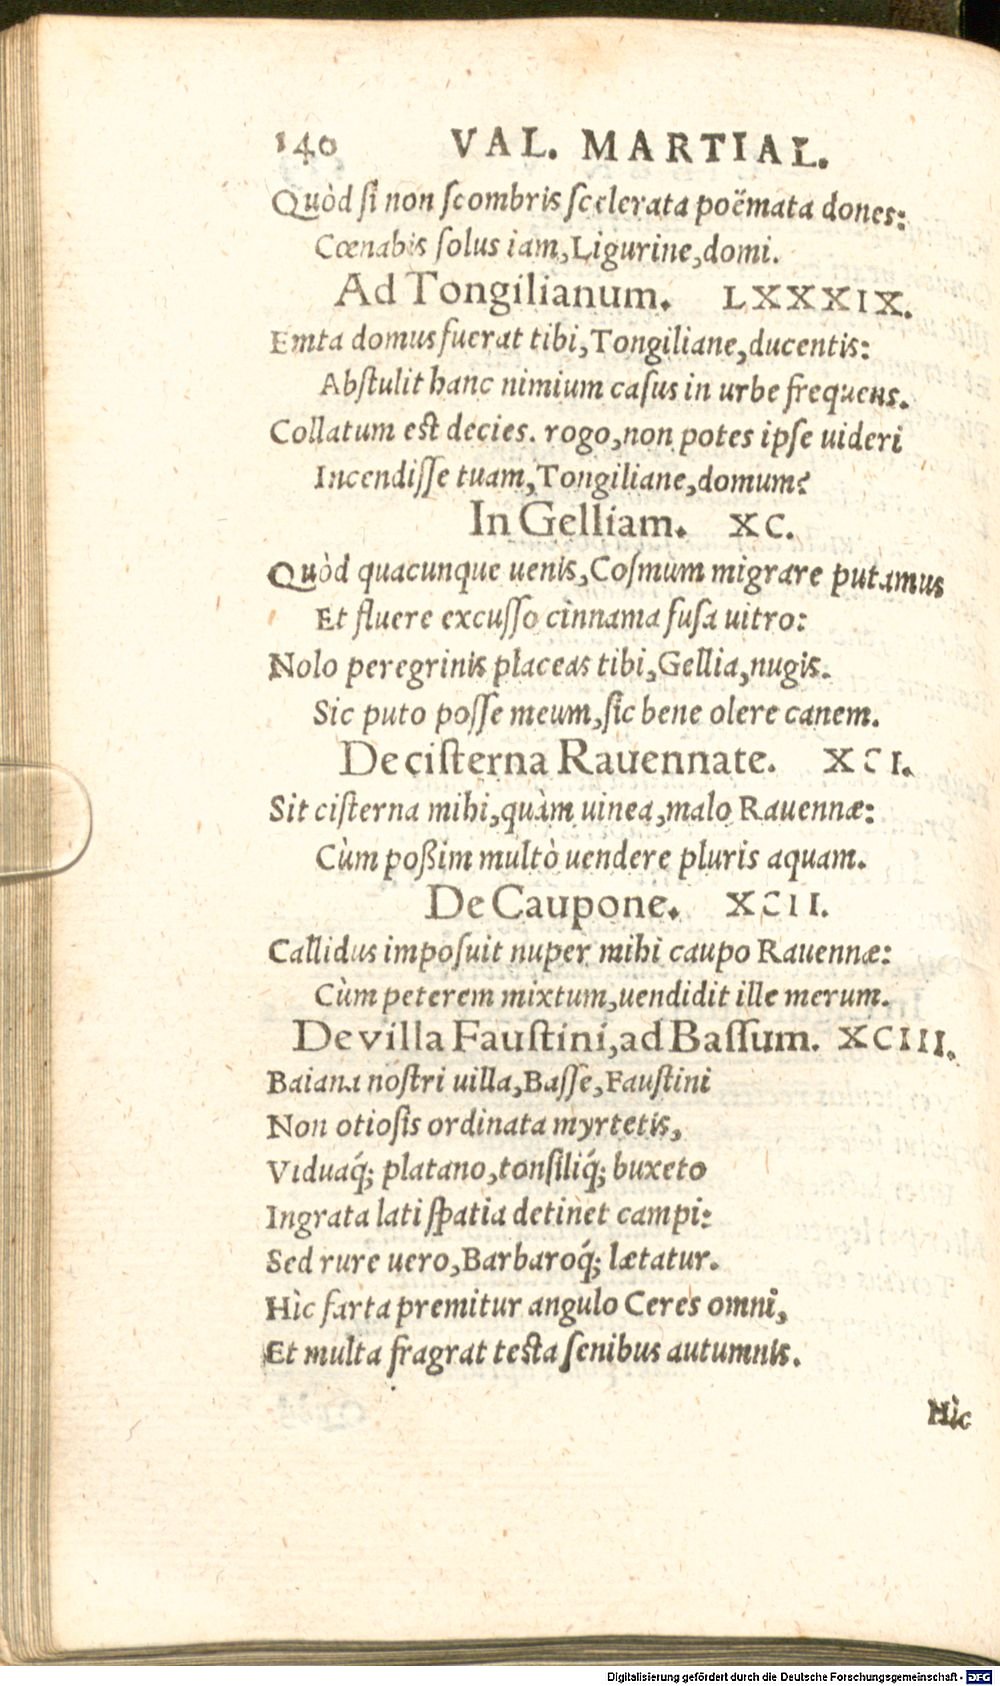 140 VAL. MARTIAL.
Quòd ſi non ſcombris ſcelerata poëmata dones:
Cœnabis ſolus iam, Ligurine, domi.
Ad Tongilianum. LXXXIX.
Emta domus fuerat tibi, Tongiliane, ducentis:
Abſtulit hanc nimium caſus in urbe frequens.
Collatum eſt decies. rogo, non potes ipſe uideri
Incendiſſe tuam, Tongiliane, domum?
In Gelliam. XC.
Quòd quacunque uenis, Coſmum migrare putamus
Et fluere excuſſo cinnama fuſa uitro:
Nolo peregrinis placeas tibi, Gellia, nugis.
Sic puto poſſe meum, ſic bene olere canem.
De ciſterna Rauennate. XCI.
Sit ciſterna mihi, quàm uinea, malo Rauennæ:
Cùm poßim multò uendere pluris aquam.
De Caupone. XCII.
Callidus impoſuit nuper mihi caupo Rauennæ:
Cùm peterem mixtum, uendidit ille merum.
De villa Fauſtini, ad Baſſum. XCIII.
Baiana noſtri uilla, Baſſe, Fauſtini
Non otioſis ordinata myrtetis,
Viduaq́; platano, tonſiliq́; buxeto
Ingrata lati ſpatia detinet campi:
Sed rure uero, Barbaroq́; lætatur.
Hìc farta premitur angulo Ceres omni,
Et multa fragrat teſta ſenibus autumnis.
Hìc
Digitalisierung gefördert durch die Deutsche Forschungsgemeinschaft - DFG